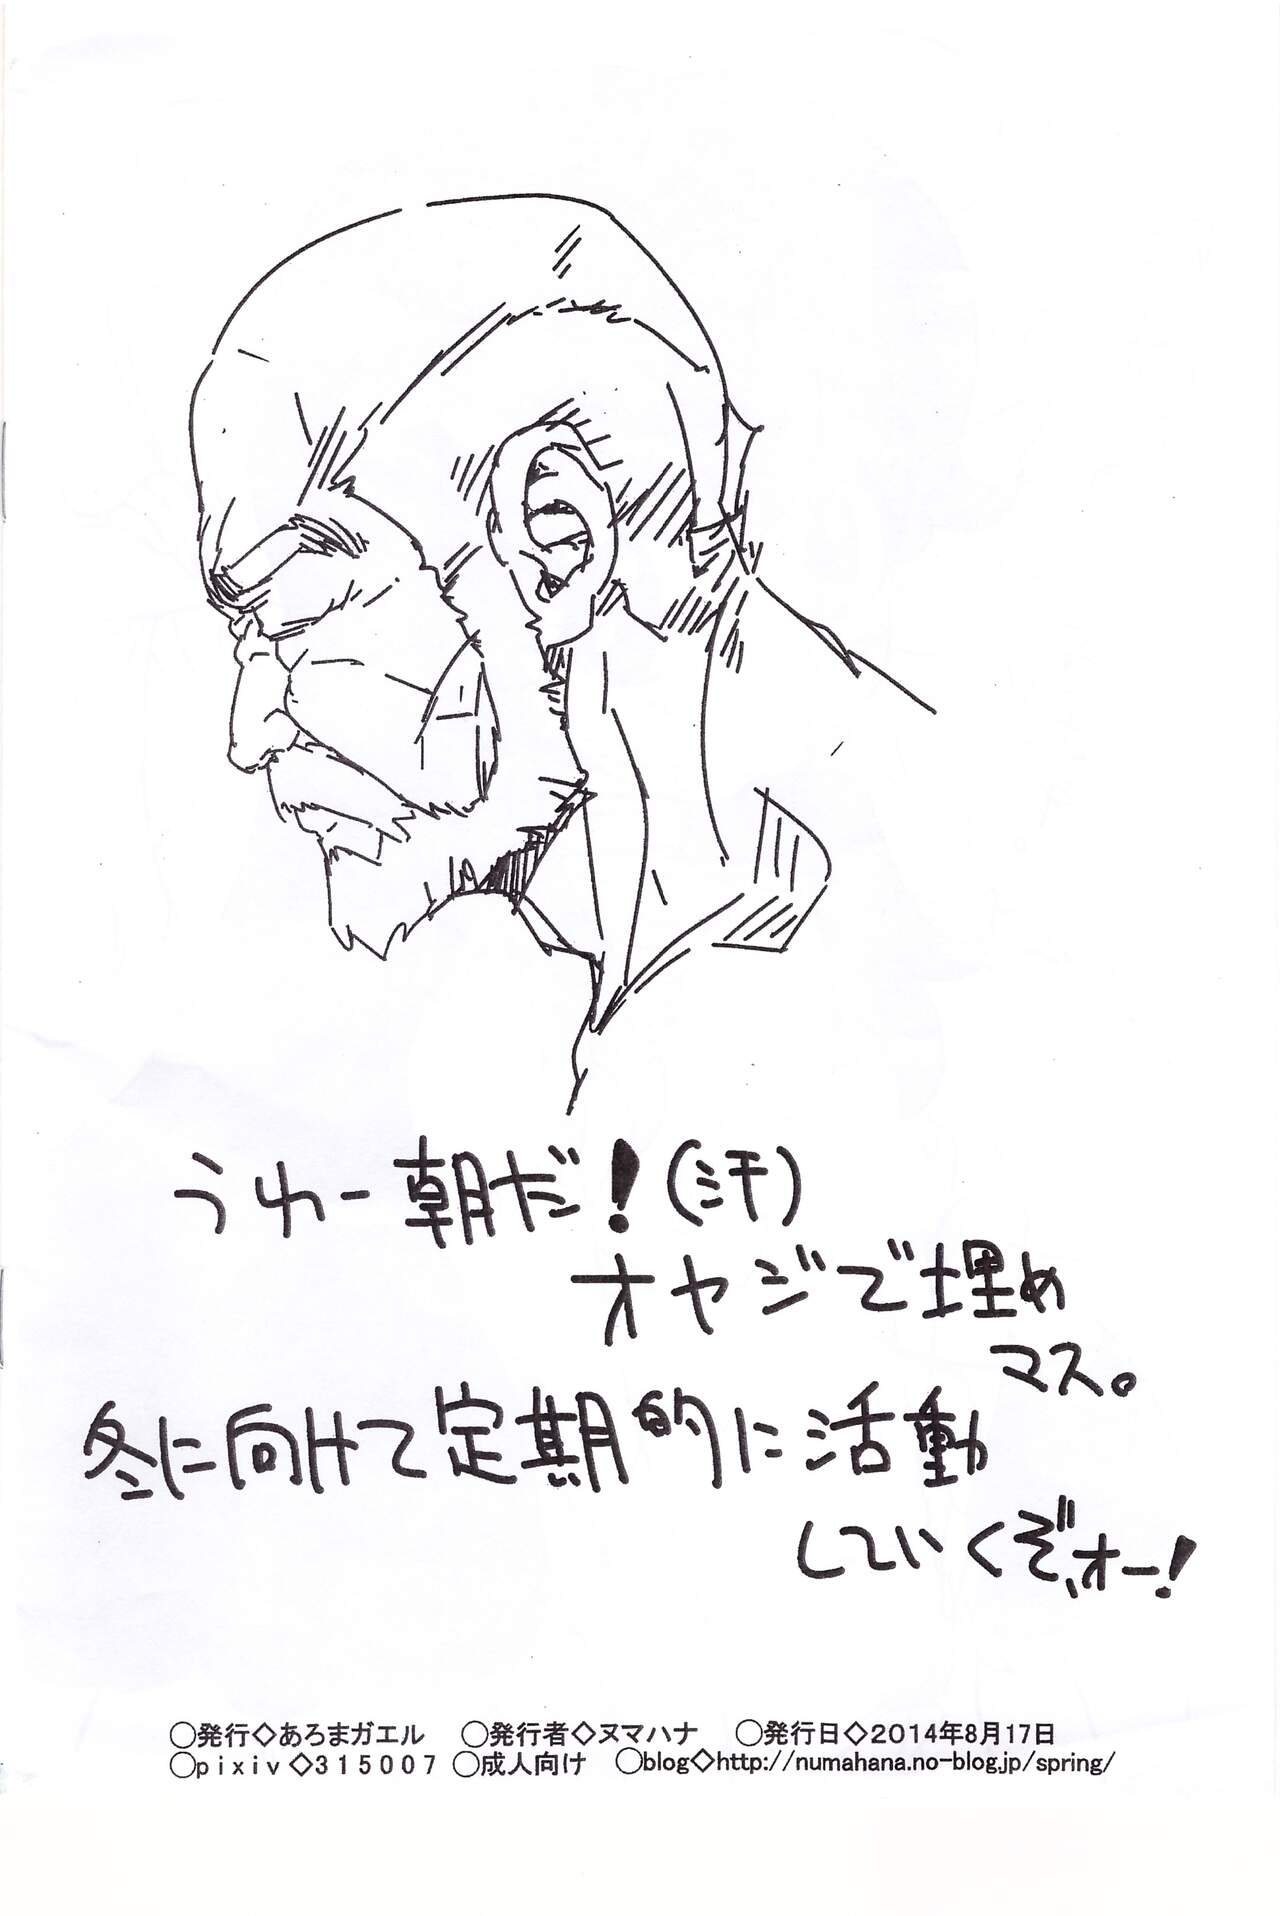 うわー朝だ！(汗)
オヤジで埋め
マス。
冬に向けて定期的に活動
していくぞ、オー！
○発行◇あろまガエル　○発行者◇ヌマハナ　○発行日◇2014年8月17日
○pixiv◇315007 ○成人向け　○blog◇http://numahana.no-blog.jp/spring/